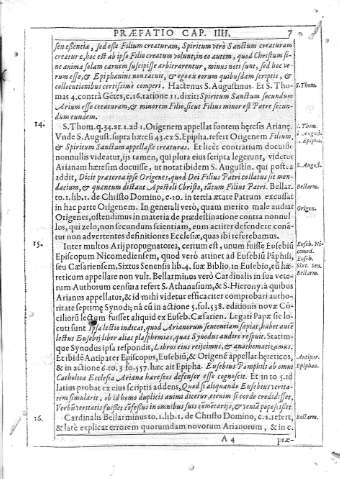 PRÆFATIO CAP. IIII. 7
sen essentia, sed esse Filium creaturam, Spiritum verò Sanctum creaturam
creaturæ, hoc est ab ipso Filio creatum volunt, in eo autem, quod Christum si-
ne anima solam carnem suscepisse arbitrentur, minus noti sunt, sed hoc ve-
rum esse, & Epiphanius non tacuit, & ego ex eorum quibusdam scriptis, &
collocutionibus certissimè comperi. Hactenus S. Augustinus. Et S. Tho- S. Thom.
mas 4. contra Gētes, c. 16. ratione 11. dixit: Spiritum Sanctum secundum
Arium esse creaturam, & minorem Filio, sicut Filius minor est Patre secun-
dum eundem.
14. S. Thom. q. 34. ar. 1. ad 1. Origenem appellat fontem hæresis Arianæ. S. Thom.
Vnde S. August. supra hæresi 43. ex S. Epipha. refert Origenem Filium, S. August.
& Spiritum Sanctum appellasse creaturas. Et licèt contrarium docuisse S. Epipha.
nonnullis videatur, ijs tamen, qui plura eius scripta legerunt, videtur
Arianam hæresim docuisse, ut notat ibidem S. Augustin. qui postea S. August.
addit, Dicit præterea ipse Origenes, quod Dei Filius Patri collatus sit men-
dacium, & quantum distant Apostoli Christo, tātum Filius Patri. Bellar. Bellarm.
to. 1. lib. 1. de Christo Domino, c. 10. in tertia ætate Patrum excusat
in hac parte Origenem. In generali verò, quàm meritò malè audiat Origen.
Origenes, ostendimus in materia de prædestinatione contra nonnul-
los, qui zelo, non secundum scientiam, eum acriter defendere conā-
tur non advertentes definitiones Ecclesiæ, quas ibi referebamus.
15. Inter multos Arij propugnatores, certum est, unum fuisse Eusebiū Euseb. Ni-
Episcopum Nicomediensem, quod verò attinet ad Eusebiū Pāphili, comed.
seu Cæsariensem, Sixtus Senensis lib. 4. suæ Biblio. in Eusebio, eū hæ- Euseb.
reticum appellare non vult. Bellarminus verò Cardinalis in sua vete- Sixt. Sen.
rum Authorum censura refert S. Athanasium, & S. Hierony. à quibus Bellarm.
Arianus appellatur, & id mihi videtur efficaciter comprobari autho-
ritate septimæ Synodi, nā cū in actione 5. fol. 538. editionis novæ Cō-
ciliorū lectum fuisset aliquid ex Euseb. Cæsarien. Legati Papæ sic lo-
cuti sunt Ipsa lectio indicat, quod Arianorum sententiam sapiat, habet autē
lectus Eusebij liber alias blasphemias, quas Synodus audire respuit. Statim-
que Synodus ipsa respondit, Libros eius reijcimus, & anathematizamus.
Et ibidē Antipater Episcopus, Eusebiū, & Origenē appellat hæreticos, Antipat.
& in actione 6. to. 3. fo. 557. hæc ait Epipha. Eusebius Pamphili ab omni Epiphan.
Catholica Ecclesia, Arianæ hæreseos defensor esse cognoscitur. Et in to 3. id
latius probat ex eius scriptis addens, Quod si aliquando Eusebius verita-
16. Cardinalis Bellarminus to. 1. lib. 1. de Christo Domino, c. 1. refert, Bellarm.
& latè explicat errorem quorundam novorum Arianorum, & in c.
A 4 præ-